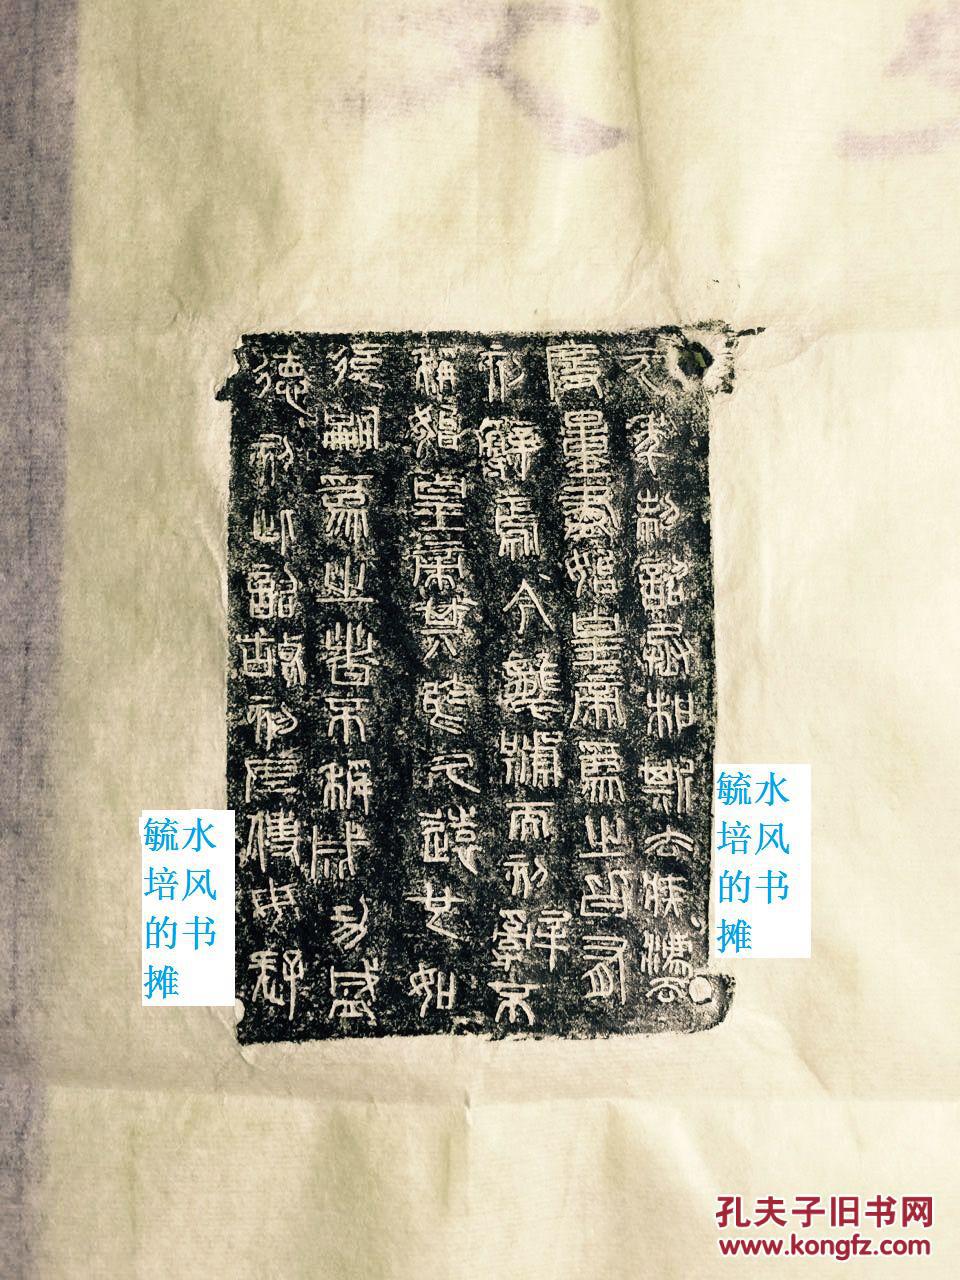 元年制詔丞相斯去疾灋
度量盡始皇帝為之皆有
刻辭焉今襲號而刻辭不
稱始皇帝其於久遠也如
後嗣為之者不稱成功盛
德刻此詔故刻左使毋疑
毓水
培风
的书
摊
毓水
培风
的书
摊
孔夫子旧书网
www.kongfz.com